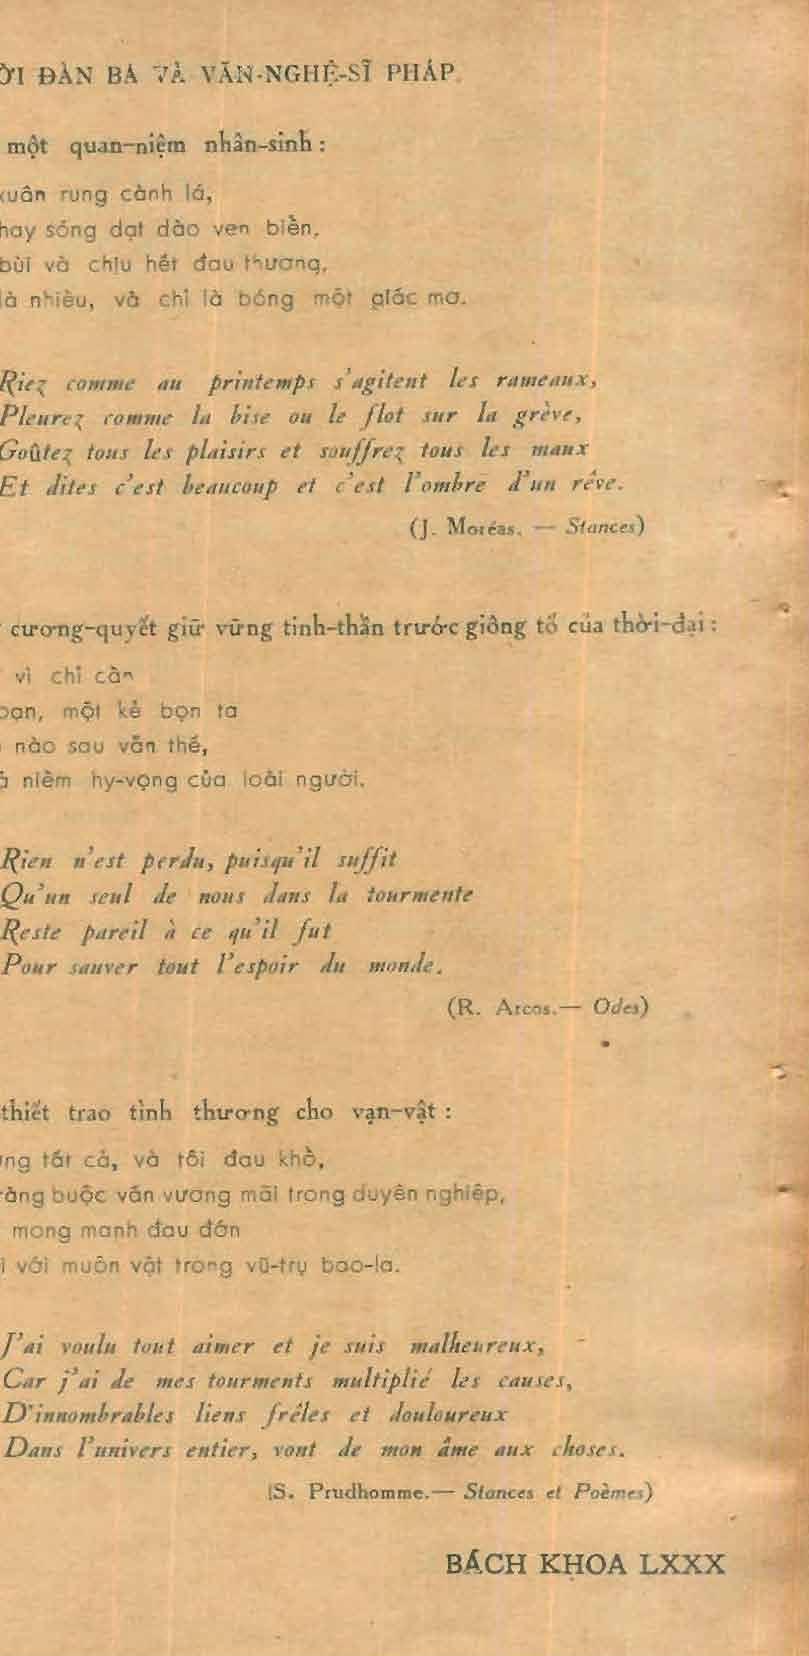 ĐÀN BÀ VÀ VĂN-NGHỆ-SĨ PHÁP
một quan-niệm nhân-sinh :
xuân rung cành lá,
hay sóng dạt dào ven biển,
bùi và chịu hết đau thương,
là nhiều, và chỉ là bóng một giấc mơ.
Riez comme au printemps s'agitent les rameaux,
Pleurez comme la bise ou le flot sur la grève,
Goûtez tous les plaisirs et souffrez tous les maux
Et dites c'est beaucoup et c'est l'ombre d'un rêve.
(J. Moréas. — Stances)
cương-quyết giữ vững tinh-thần trước giông tố của thời-đại :
vì chỉ cần
bạn, một kẻ bọn ta
nào sau vẫn thế,
niềm hy-vọng của loài người.
Rien n'est perdu, puisqu'il suffit
Qu'un seul de nous dans la tourmente
Reste pareil à ce qu'il fut
Pour sauver tout l'espoir du monde.
(R. Arcos.— Odes)
thiết trao tình thương cho vạn-vật :
tất cả, và tôi đau khổ,
ràng buộc vấn vương mãi trong duyên nghiệp,
mong manh đau đớn
với muôn vật trong vũ-trụ bao-la.
J'ai voulu tout aimer et je suis malheureux,
Car j'ai de mes tourments multiplié les causes,
D'innombrables liens frêles et douloureux
Dans l'univers entier, vont de mon âme aux choses.
(S. Prudhomme.— Stances et Poèmes)
BÁCH KHOA LXXX